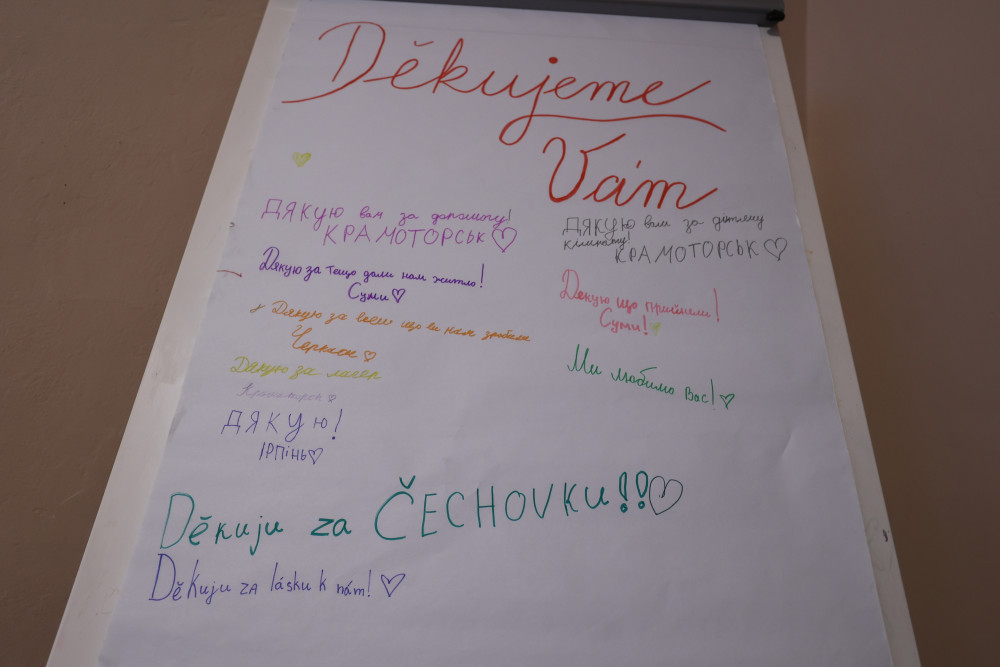 Děkujeme
Vám
ДЯКУЮ вам за допомогу!
КРАМОТОРСЬК
Дякую за тещо дали нам житло!
Суми
Дякую за всеи що ви нам зробили
Черкаси
Дякую за лагер
Краматорск
ДЯКУЮ!
ІРПІНЬ
ДЯКУЮ вам за дитячу
кімнату!
КРАМОТОРСЬК
Дякую що прийняли!
Суми!
Ми любимо Вас!
Děkuju za ČECHOVKU!!
Děkuju za lásku k nám!